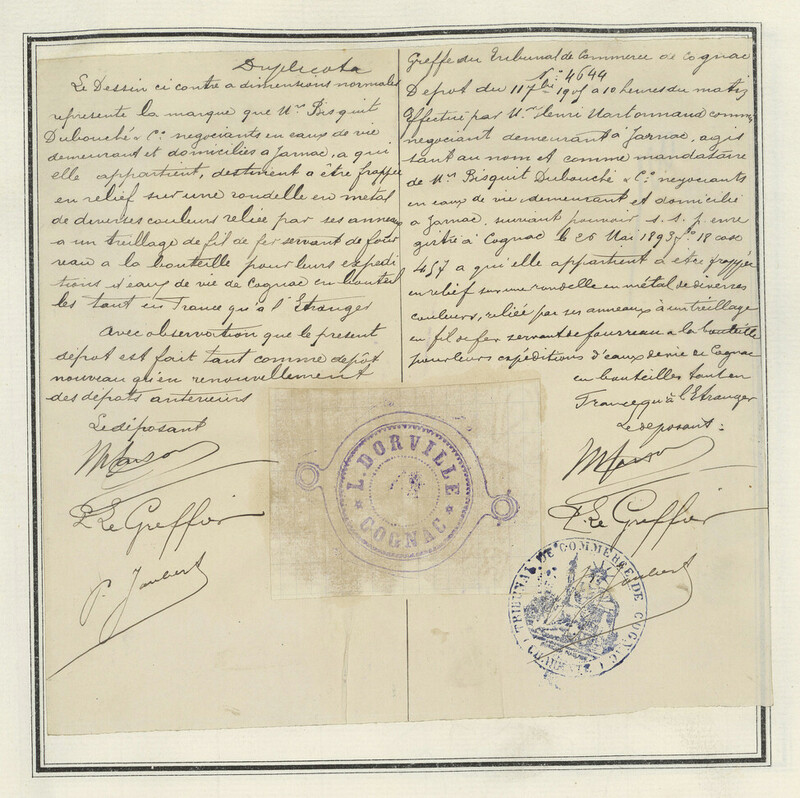 Duplicata
Le Dessin ci contre a dimensions normales
représente la marque que Mrs Bisquit
Dubouché & Cie negociants en eaux de vie
demeurant et domiciliés a Jarnac, a qui
elle appartient, destinent a être frappée
en relief sur une rondelle en métal
de diverses couleurs reliée par ses anneaux
a un treillage de fil de fer servant de four
reau a la bouteille pour leurs expedi
tions d'eaux de vie de Cognac en bouteil
les tant en France qu'a l'Etranger
Avec observation que le present
dépot est fait tant comme depôt
nouveau qu'en renouvellement
des dépots anterieurs
Le déposant
P. Le Greffier
P. Joubert
Greffe du Tribunal de Commerce de Cognac
No 4644
Depot du 11 7bre 1905 a 10 heures du matin
Effectué par Mr Henri comme
negociant demeurant a Jarnac, agis
sant au nom et comme mandataire
de Mrs Bisquit Dubouché & Cie negociants
en eaux de vie demeurant et domicilié
a Jarnac, suivant pouvoir s. s. p. enre
gistré a Cognac le 25 Mai 1893 fo 18 case
457 a qui elle appartient a etre frappée
en relief sur une rondelle en métal de diverses
couleurs, reliée par ses anneaux a un treillage
en fil de fer servant de fourreau a la bouteille
pour leurs expéditions d'eaux de vie de Cognac
en bouteilles tant en
France qu'à l'Etranger
Le deposant
P. Le Greffier
Joubert
L. DORVILLE
COGNAC
TRIBUNAL DE COMMERCE DE COGNAC
(CHARENTE)